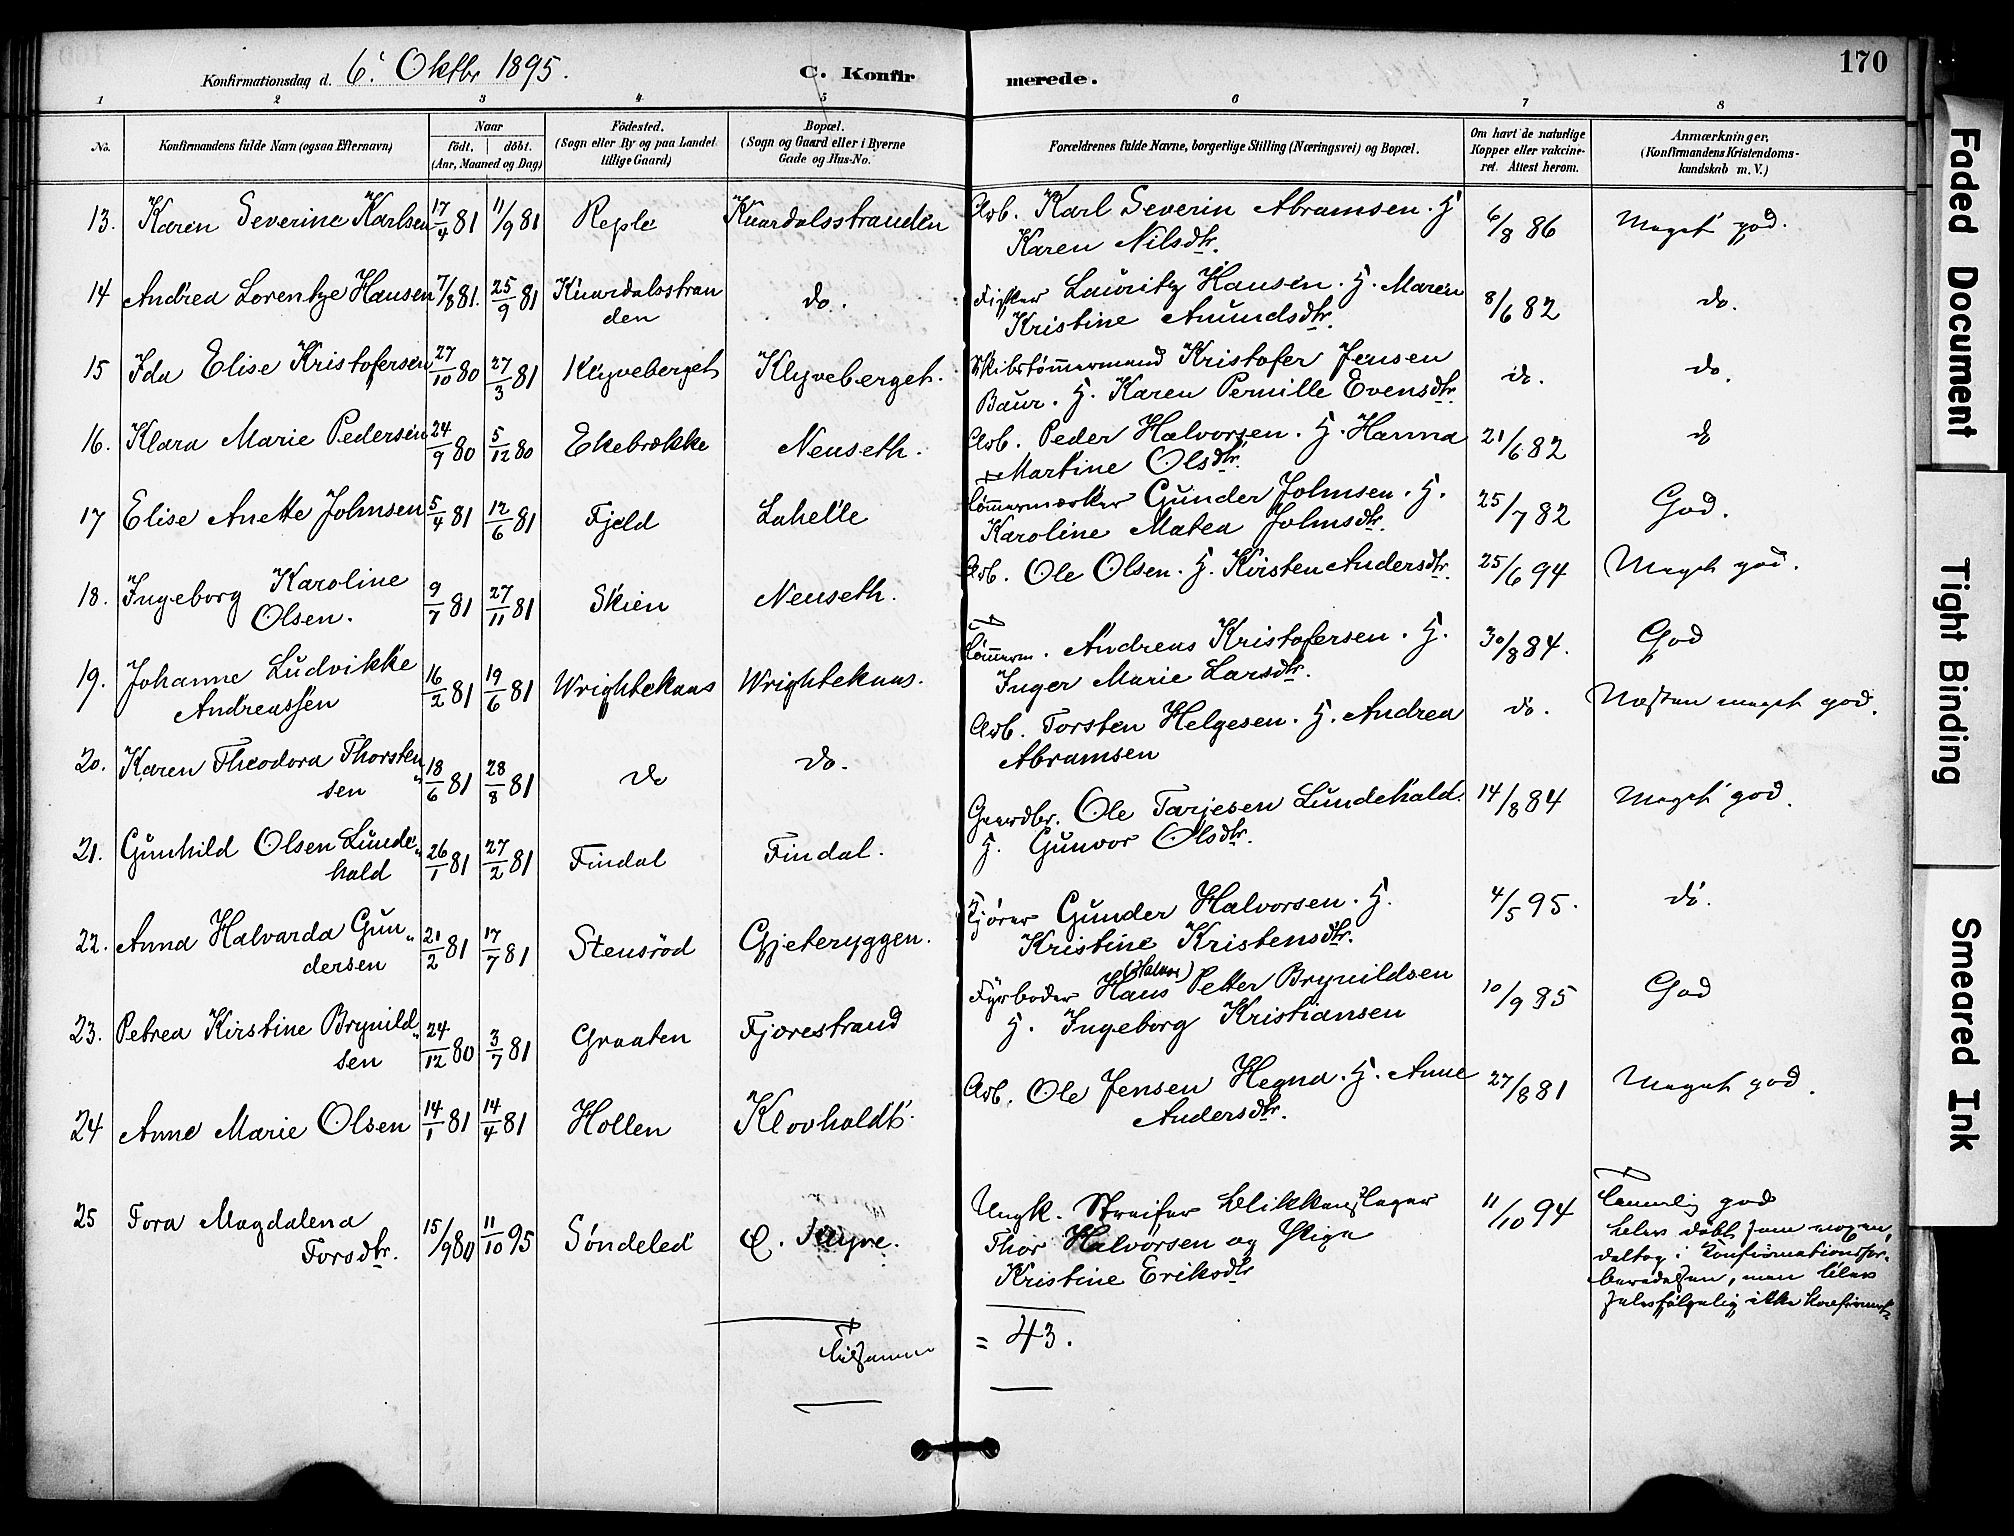 170
Konfirmationsdag d. 6. Oktbr 1895.
C. Konfirmerede.
1 2 3 4 5 6 7 8
No.
Konfirmandens fulde Navn (ogsaa Efternavn)
Naar
födt. döbt.
(Aar, Maaned og Dag)
Födested.
(Sogn eller By og paa Landet
tillige Gaard)
Bopæl.
(Sogn og Gaard eller i Byerne
Gade og Hus-No.
Forældrenes fulde Navne, borgerlige Stilling (Næringsvei) og Bopæl.
Om havt de naturlige
Kopper eller vakcine-
ret. Attest herom.
Anmærkninger.
(Konfirmandens Kristendoms-
kundskab m. V.)
13. Karen Severine Karlsen 17/4 81 11/9 81 Reple Knardalsstranden Arb. Karl Severin Abramsen. H 6/8 86 Meget god.
Karen Nilsdtr.
14 Andrea Lorentze Hansen 7/8 81. 25/9 81 Knardalsstran do. Fisker Lauritz Hansen. H. Maren 8/6 82 do.
den Kristine Amundsdtr.
15 Ida Elise Kristofersen 27/10 80 27/3 81 Klyveberget Klyveberget. Skibstømmermand Kristofer Jensen do. do.
Baur. H. Karen Pernille Evensdtr.
16. Klara Marie Pedersen 24/9 80 5/12 80 Ekebrække Nenseth. Arb. Peder Halvorsen. H. Hanna 21/6 82 do
Martine Olsdtr.
17 Elise Anette Johnsen 5/4 81 12/6 81 Fjeld Lahelle Tømmermærker Gunder Johnsen. H. 25/7 82 God.
Karoline Matea Johnsdtr.
18. Ingeborg Karoline 9/7 81 27/11 81 Skien Nenseth. Arb. Ole Olsen. H. Kirsten Andersdtr. 25/6 94 Meget god.
Olsen.
19. Johanne Ludvikke 16/2 81 19/6 81 Wrighteknas Wrighteknas. Tømmerm. Andreas Kristofersen. H. 30/8 84. God
Andreassen Inger Marie Larsdtr.
20. Karen Theodora Thorsten 18/6 81 28/8 81 do do. Arb. Torsten Helgesen. H. Andrea do. Næsten meget god.
sen Abramsen
21. Gunhild Olsen Lunde 26/1 81 27/2 81 Findal Findal. Gaardbr. Ole Tarjesen Lundehald. 14/8 84 Meget god.
hald H. Gunvor Olsdtr.
22. Anna Halvarda Gun 21/2 81 17/7 81 Stensröd Gjeteryggen. Kjører Gunder Halvorsen. H. 4/5 95. do.
dersen Kristine Kristensdtr.
23. Petrea Kirstine Brynild 24/12 80 3/7 81 Graaten Fjorestrand Fyrböder Hans Petter Brynildsen 10/9 85 God
sen H. Ingeborg Kristiansen
24 Anne Marie Olsen 14/1 81 14/4 81 Hollen Klovholdt. Arb. Ole Jensen Hegna. H. Anne 27/8 81 Meget god.
Andersdtr.
25 Tora Magdalena 15/9 80 11/10 95 Søndeled Ø. Klyve. Ungk. Streifer Blikkenslager 11/10 94 Temmelig god
Torsdtr. Thor Halvorsen og Pige
Kristine Eriksdtr
blev døbt som voxen,
deltog i Konfirmationsfor-
beredelsen, men blev
selvfølgelig ikke konfirmert
Tilsammen = 43.
Faded Document
Tight Binding
Smeared Ink